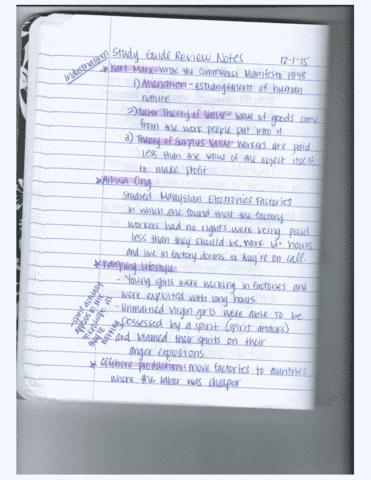 Study Guide Review Notes 12-1-15
Industrialism
* Karl Marx- wrote the Communist Manifesto 1848
1) Alienation - estrangement of human
nature
2) Labor Theory of Value - value of goods come
from the work people put into it
3) Theory of Surplus Value- workers are paid
less than the value of the object itself
to make profit
* Aihwa Ong
Studied Malaysian Electronics Factories
in which ong found that the factory
workers had no rights, were being paid
less than they should be, work hours
and live in factory dorms, so they're on call.
* Kampung Lifestyle-
- Young girls were working in factories and
were exploited with long hours.
- Unmarried virgin girls were able to be
possessed by a spirit (spirit attacks)
and blamed their spirits on their
anger explosions.
-spirit actually
appears in the
microscope as
they're
working
* Offshore production- move factories to countries
where the labor was cheaper